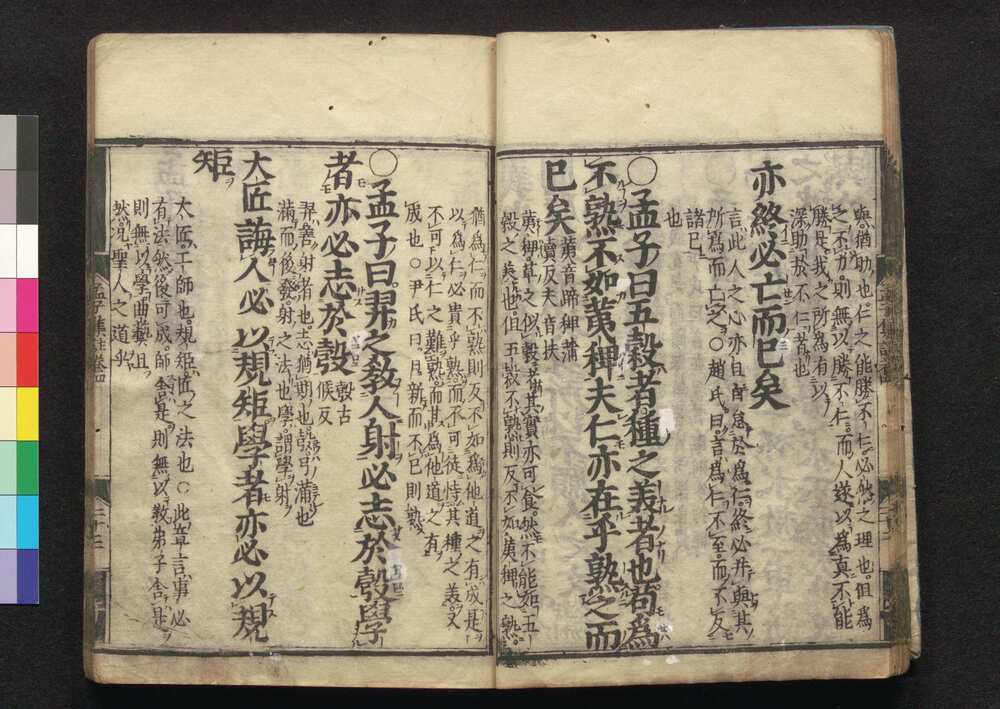 與猶助也仁之能勝不仁必然之理也但為
之不力則無以勝不仁而人遂以為真不能
勝是我之所為有以
深助於不仁者也
亦終必亡而已矣
言此人之心亦且自怠於為仁終必并與其
所為而亡之〇趙氏曰言為仁不至而不反
諸己
也
〇孟子曰五穀者種之美者也苟為
不熟不如荑稗夫仁亦在乎熟之而
已矣
荑音蹄稗蒲
賣反夫音扶
荑稗草之似穀者其實亦可食然不能如五
穀之美也但五穀不熟則反不如荑稗之熟
猶為仁而不熟則反不如為他道之有成是
以為仁必貴乎熟而不可徒恃其種之美又
不可以仁之難熟而甘為他道之有
成也〇尹氏曰日新而不已則熟
〇孟子曰羿之教人射必志於彀學
者亦必志於彀
彀古
候反
羿善射者也志猶期也彀弓滿也
滿而後發射之法也學謂學射
大匠誨人必以規矩學者亦必以規
矩
大匠工師也規矩匠之法也〇此章言事必
有法然後可成師舍是則無以教弟子舍是
則無以學曲藝且
然況聖人之道乎